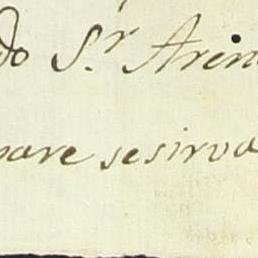 do S.r Arin
pare sesirva